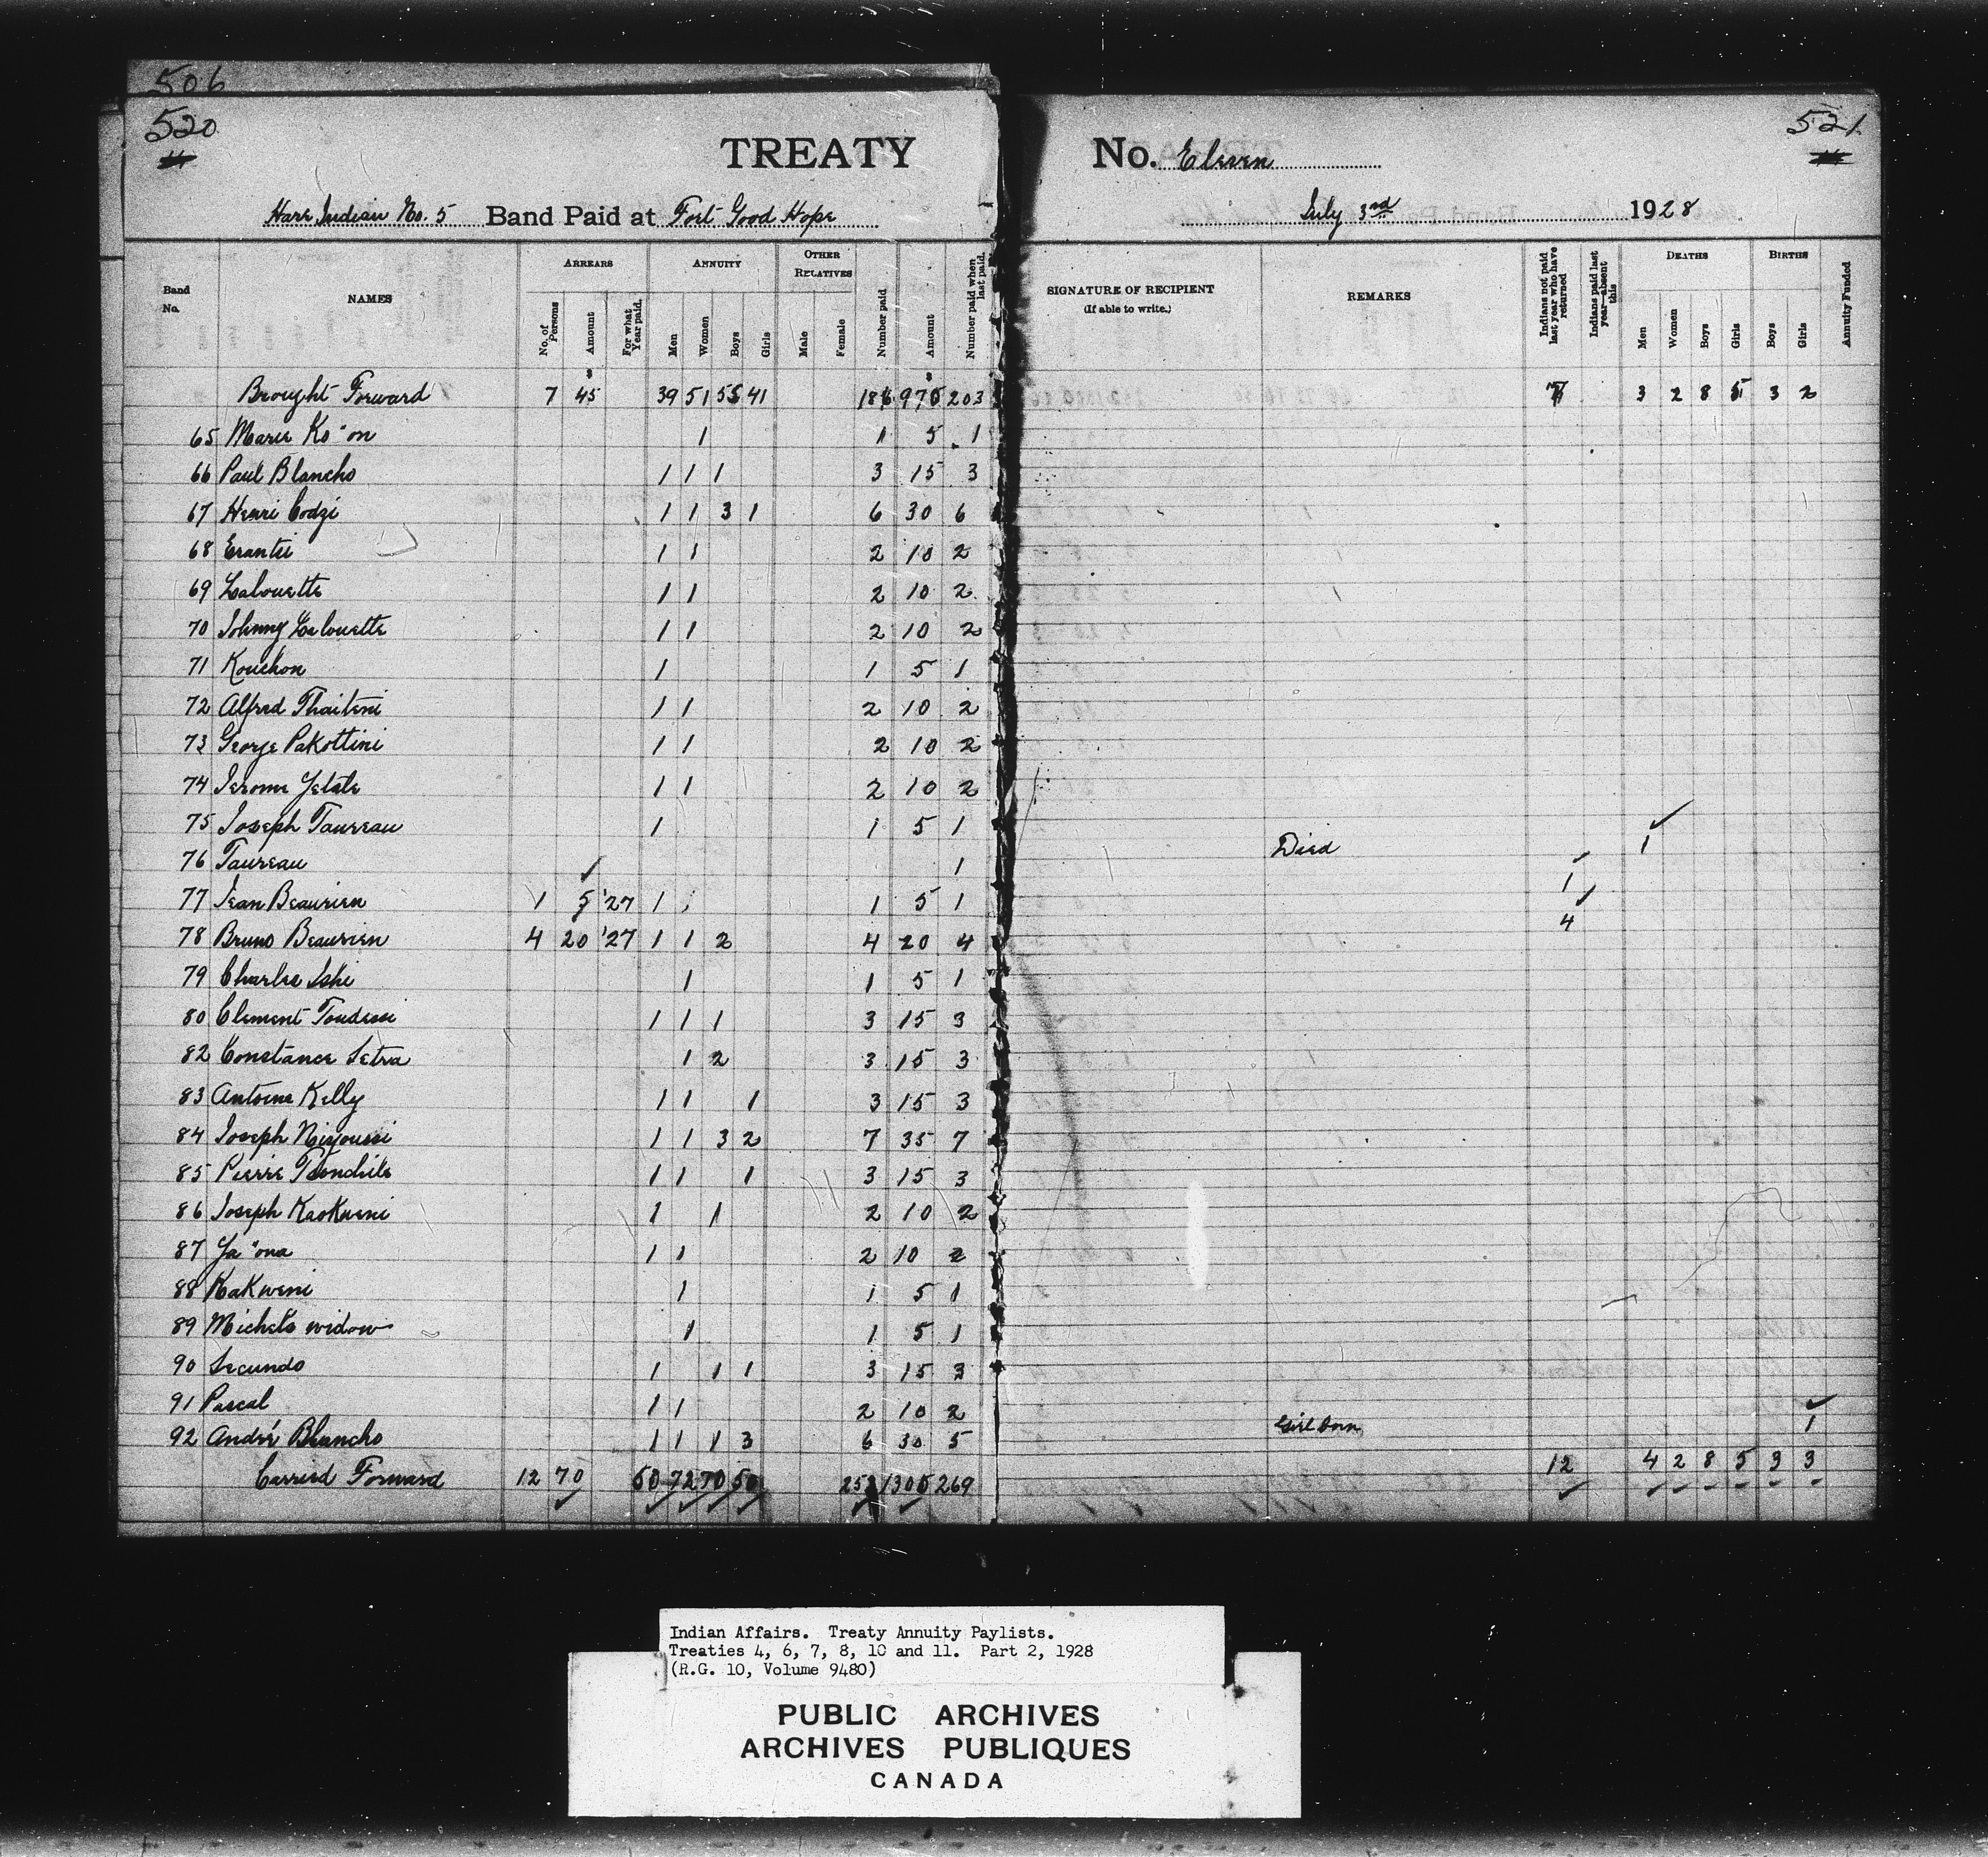 506
520
521
TREATY No. Eleven
Hare Indian No. 5 Band Paid at Fort Good Hope July 3rd 1928
Band No.
NAMES
ARREARS
No. of Persons
Amount
For what Year paid.
ANNUITY
Men
Women
Boys
Girls
OTHER RELATIVES
Male
Female
Number paid
Amount
Number paid when last paid.
SIGNATURE OF RECIPIENT
(If able to write.)
REMARKS
Indians not paid last year who have returned
Indians paid last year—absent this
DEATHS
Men
Women
Boys
Girls
BIRTHS
Boys
Girls
Annuity Funded
Brought Forward 7 45 39 51 55 41 186 970 203 7 3 2 8 5 3 2
65 Marie Ko"on 1 1 5 1
66 Paul Blancho 1 1 1 3 15 3
67 Henri Codzi 1 1 3 1 6 30 6
68 Erantsi 1 1 2 10 2
69 Lalouette 1 1 2 10 2
70 Johnny Lalouette 1 1 2 10 2
71 Kouchon 1 1 5 1
72 Alfred Thaiteni 1 1 2 10 2
73 George Pakottini 1 1 2 10 2
74 Jerome Yelale 1 1 2 10 2
75 Joseph Taureau 1 1 5 1
76 Taureau 1 Died 1
77 Jean Beaurien 1 5 '27 1 1 5 1 1
78 Bruno Beaurien 4 20 '27 1 1 2 4 20 4 4
79 Charles Ishi 1 1 5 1
80 Clement Toudessi 1 1 1 3 15 3
82 Constance Setra 1 2 3 15 3
83 Antoine Kelly 1 1 1 3 15 3
84 Joseph Niyoussi 1 1 3 2 7 35 7
85 Pierre 1 1 1 3 15 3
86 Joseph Kaokweni 1 1 2 10 2
87 Ya"ona 1 1 2 10 2
88 Kakweni 1 1 5 1
89 Michel's widow 1 1 5 1
90 Secundo 1 1 1 3 15 3
91 Pascal 1 1 2 10 2
92 André Blancho 1 1 1 3 6 30 5 Girl born 1
Carried Forward 12 70 60 72 70 50 252 1305 269 12 4 2 8 5 3 3
Indian Affairs. Treaty Annuity Paylists.
Treaties 4, 6, 7, 8, 10 and 11. Part 2, 1928
(R.G. 10, Volume 9480)
PUBLIC ARCHIVES
ARCHIVES PUBLIQUES
CANADA